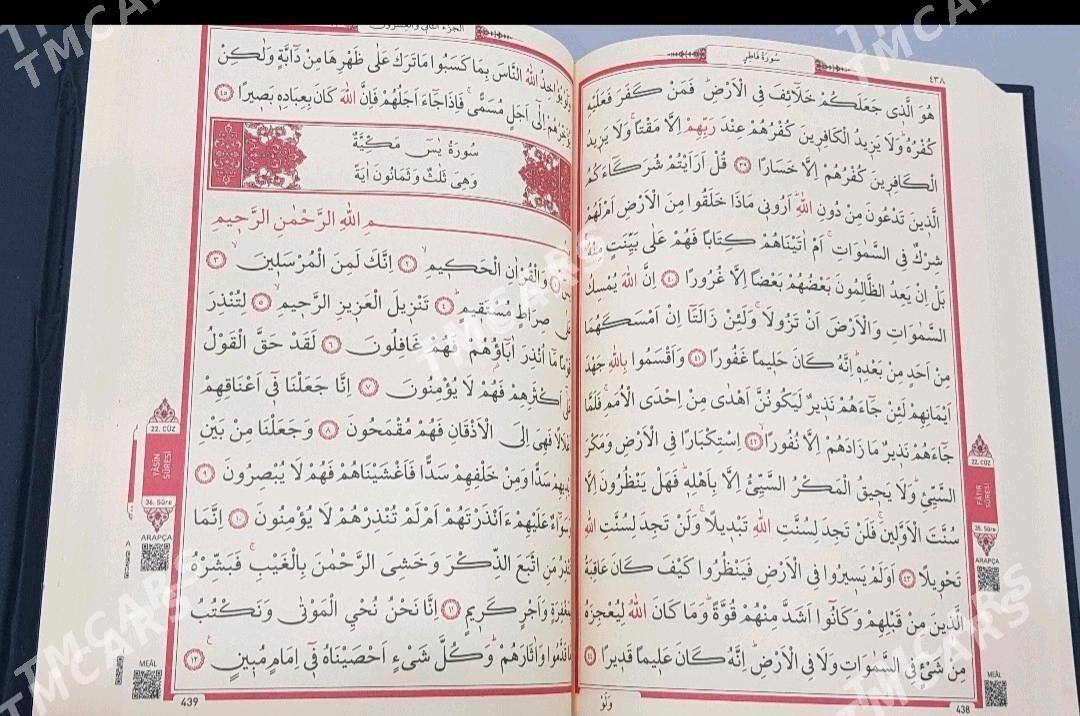 سُورَةُ فَاطِرٍ
٤٣٨
هُوَ الَّذى جَعَلَكُمْ خَلَائِفَ فِى الْاَرْضِ فَمَنْ كَفَرَ فَعَلَيْهِ
كُفْرُهُ وَلَا يَزيدُ الْكَافِرينَ كُفْرُهُمْ عِنْدَ رَبِّهِمْ اِلَّا مَقْتًا وَلَا يَزيدُ
الْكَافِرينَ كُفْرُهُمْ اِلَّا خَسَارًا ٣٩ قُلْ اَرَاَيْتُمْ شُرَكَاءَكُمُ
الَّذينَ تَدْعُونَ مِنْ دُونِ اللّٰهِ اَرُونى مَاذَا خَلَقُوا مِنَ الْاَرْضِ اَمْ لَهُمْ
شِرْكٌ فِى السَّمٰوَاتِ اَمْ اٰتَيْنَاهُمْ كِتَابًا فَهُمْ عَلٰى بَيِّنَتٍ مِنْهُ
بَلْ اِنْ يَعِدُ الظَّالِمُونَ بَعْضُهُمْ بَعْضًا اِلَّا غُرُورًا ٤٠ اِنَّ اللّٰهَ يُمْسِكُ
السَّمٰوَاتِ وَالْاَرْضَ اَنْ تَزُولَا وَلَئِنْ زَالَتَا اِنْ اَمْسَكَهُمَا
مِنْ اَحَدٍ مِنْ بَعْدِه اِنَّهُ كَانَ حَليمًا غَفُورًا ٤١ وَاَقْسَمُوا بِاللّٰهِ جَهْدَ
اَيْمَانِهِمْ لَئِنْ جَاءَهُمْ نَذيرٌ لَيَكُونُنَّ اَهْدٰى مِنْ اِحْدَى الْاُمَمِ فَلَمَّا
جَاءَهُمْ نَذيرٌ مَا زَادَهُمْ اِلَّا نُفُورًا ٤٢ اِسْتِكْبَارًا فِى الْاَرْضِ وَمَكْرَ
السَّيِّئِ وَلَا يَحيقُ الْمَكْرُ السَّيِّئُ اِلَّا بِاَهْلِه فَهَلْ يَنْظُرُونَ اِلَّا
سُنَّتَ الْاَوَّلينَ فَلَنْ تَجِدَ لِسُنَّتِ اللّٰهِ تَبْديلًا وَلَنْ تَجِدَ لِسُنَّتِ اللّٰهِ
تَحْويلًا ٤٣ اَوَلَمْ يَسيرُوا فِى الْاَرْضِ فَيَنْظُرُوا كَيْفَ كَانَ عَاقِبَةُ
الَّذينَ مِنْ قَبْلِهِمْ وَكَانُوا اَشَدَّ مِنْهُمْ قُوَّةً وَمَا كَانَ اللّٰهُ لِيُعْجِزَهُ
مِنْ شَيْءٍ فِى السَّمٰوَاتِ وَلَا فِى الْاَرْضِ اِنَّهُ كَانَ عَليمًا قَديرًا ٤٤
وَلَوْ
438
22. CÜZ
FÂTIR SÛRESİ
35. Sûre
ARAPÇA
MEÂL
الجزء الثاني والعشرون
وَلَوْ يُؤَاخِذُ اللّٰهُ النَّاسَ بِمَا كَسَبُوا مَا تَرَكَ عَلٰى ظَهْرِهَا مِنْ دَابَّةٍ وَلٰكِنْ
يُؤَخِّرُهُمْ اِلٰى اَجَلٍ مُسَمًّى فَاِذَا جَاءَ اَجَلُهُمْ فَاِنَّ اللّٰهَ كَانَ بِعِبَادِه بَصيرًا ٤٥
سُورَةُ يٰسٓ مَكِّيَّةٌ
وَهِىَ ثَلٰثٌ وَثَمَانُونَ اٰيَةً
بِسْمِ اللّٰهِ الرَّحْمٰنِ الرَّحيمِ
يٰسٓ ١ وَالْقُرْاٰنِ الْحَكيمِ ٢ اِنَّكَ لَمِنَ الْمُرْسَلينَ ٣
عَلٰى صِرَاطٍ مُسْتَقيمٍ ٤ تَنْزيلَ الْعَزيزِ الرَّحيمِ ٥ لِتُنْذِرَ
قَوْمًا مَا اُنْذِرَ اٰبَاؤُهُمْ فَهُمْ غَافِلُونَ ٦ لَقَدْ حَقَّ الْقَوْلُ
عَلٰى اَكْثَرِهِمْ فَهُمْ لَا يُؤْمِنُونَ ٧ اِنَّا جَعَلْنَا فى اَعْنَاقِهِمْ
اَغْلَالًا فَهِىَ اِلَى الْاَذْقَانِ فَهُمْ مُقْمَحُونَ ٨ وَجَعَلْنَا مِنْ بَيْنِ
اَيْديهِمْ سَدًّا وَمِنْ خَلْفِهِمْ سَدًّا فَاَغْشَيْنَاهُمْ فَهُمْ لَا يُبْصِرُونَ ٩
وَسَوَاءٌ عَلَيْهِمْ ءَاَنْذَرْتَهُمْ اَمْ لَمْ تُنْذِرْهُمْ لَا يُؤْمِنُونَ ١٠ اِنَّمَا
تُنْذِرُ مَنِ اتَّبَعَ الذِّكْرَ وَخَشِىَ الرَّحْمٰنَ بِالْغَيْبِ فَبَشِّرْهُ
بِمَغْفِرَةٍ وَاَجْرٍ كَريمٍ ١١ اِنَّا نَحْنُ نُحْيِ الْمَوْتٰى وَنَكْتُبُ
مَا قَدَّمُوا وَاٰثَارَهُمْ وَكُلَّ شَيْءٍ اَحْصَيْنَاهُ فى اِمَامٍ مُبينٍ ١٢
439
22. CÜZ
YÂSÎN SÛRESİ
36. Sûre
ARAPÇA
MEÂL
TMCARS
TMCARS
TMCARS
TMCARS
TMCARS